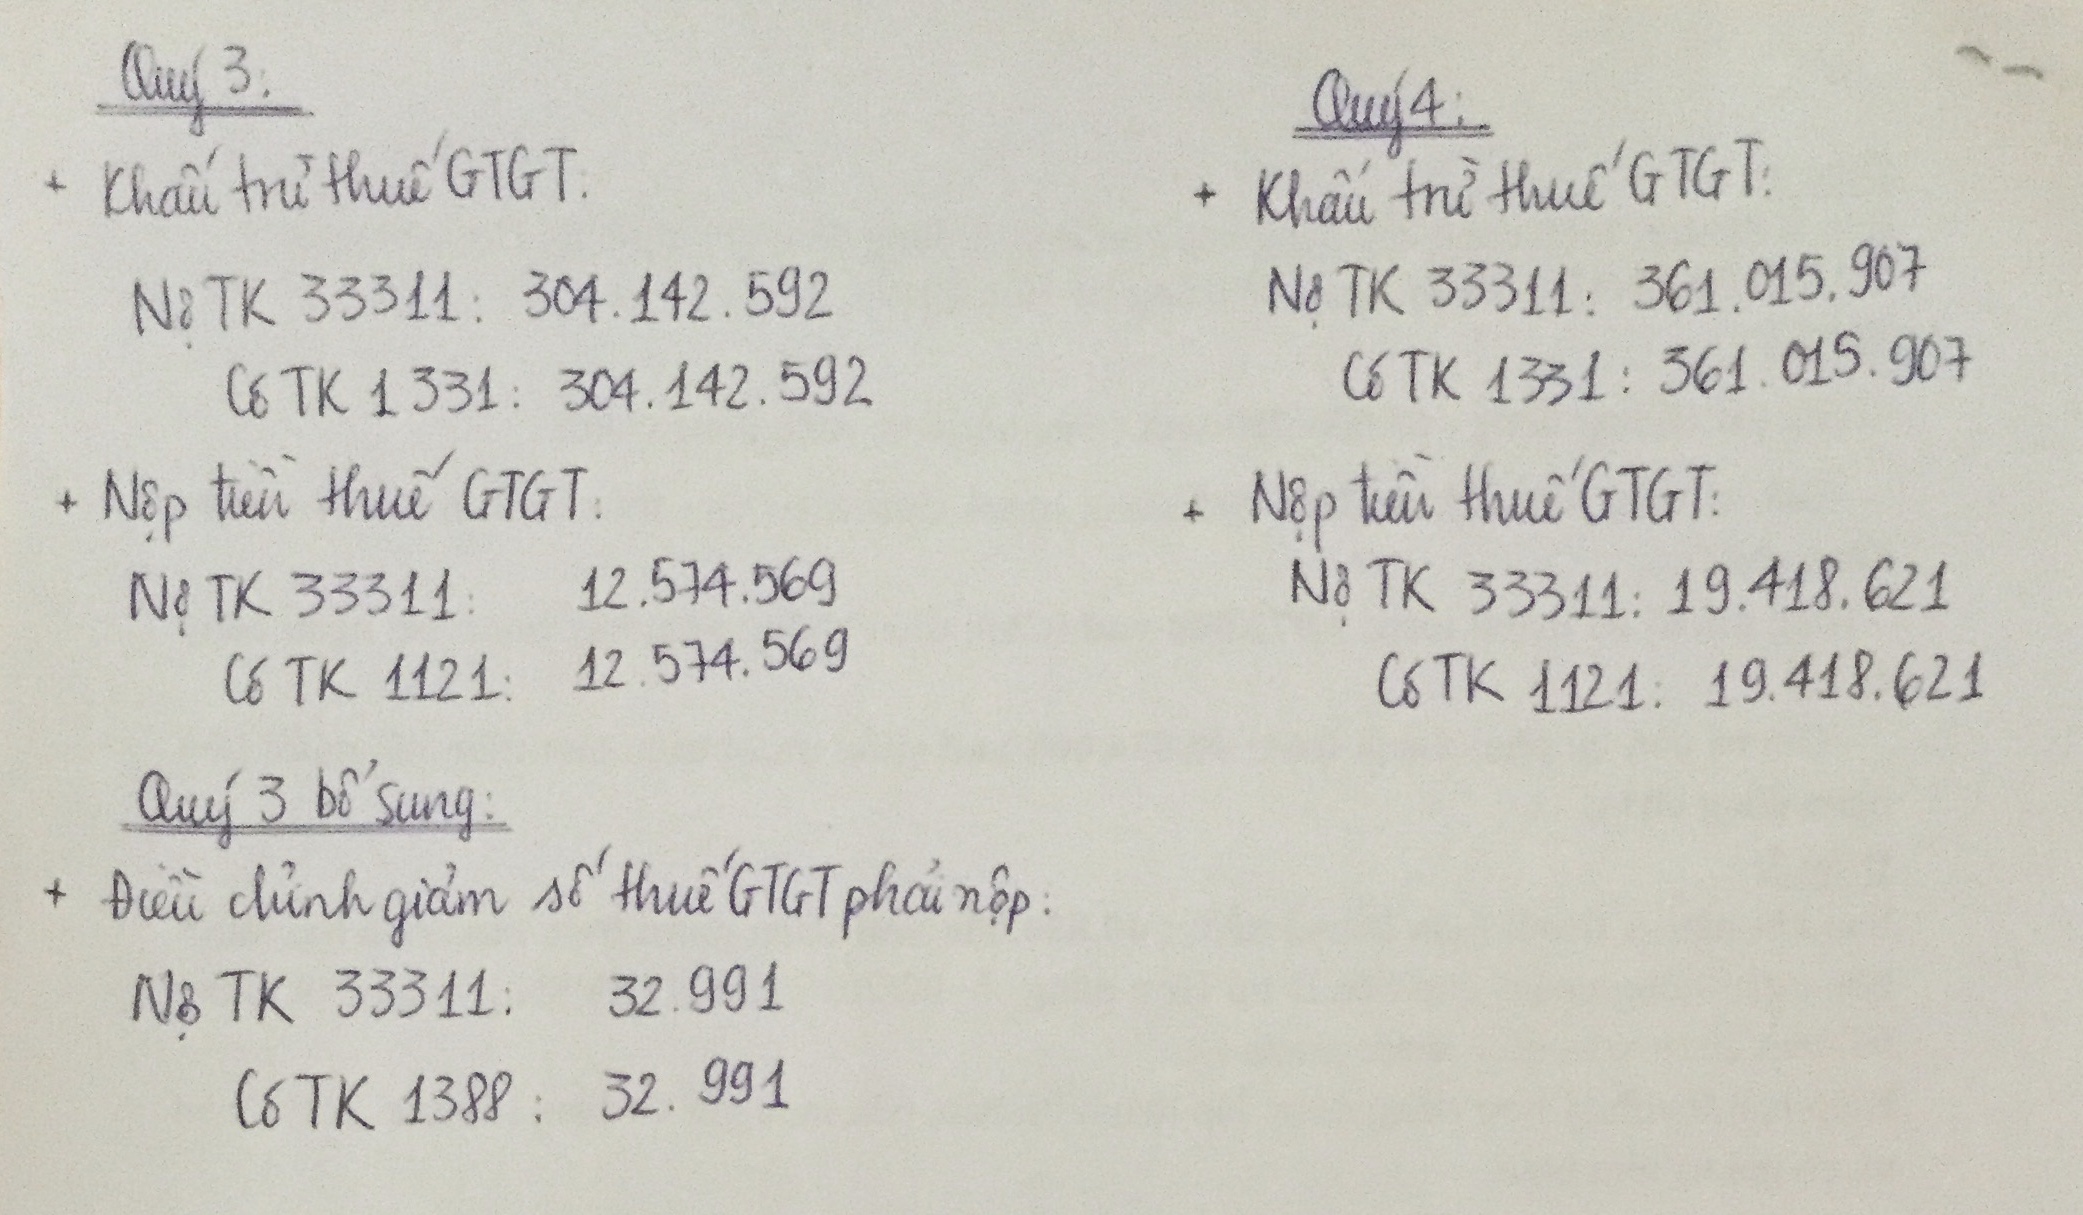 Quý 3:
+ Khấu trừ thuế GTGT:
Nợ TK 33311: 304.142.592
Có TK 1331: 304.142.592
+ Nộp tiền thuế GTGT:
Nợ TK 33311: 12.574.569
Có TK 1121: 12.574.569
Quý 3 bổ sung:
+ Điều chỉnh giảm số thuế GTGT phải nộp:
Nợ TK 33311: 32.991
Có TK 1388: 32.991
Quý 4:
+ Khấu trừ thuế GTGT:
Nợ TK 33311: 361.015.907
Có TK 1331: 361.015.907
+ Nộp tiền thuế GTGT:
Nợ TK 33311: 19.418.621
Có TK 1121: 19.418.621